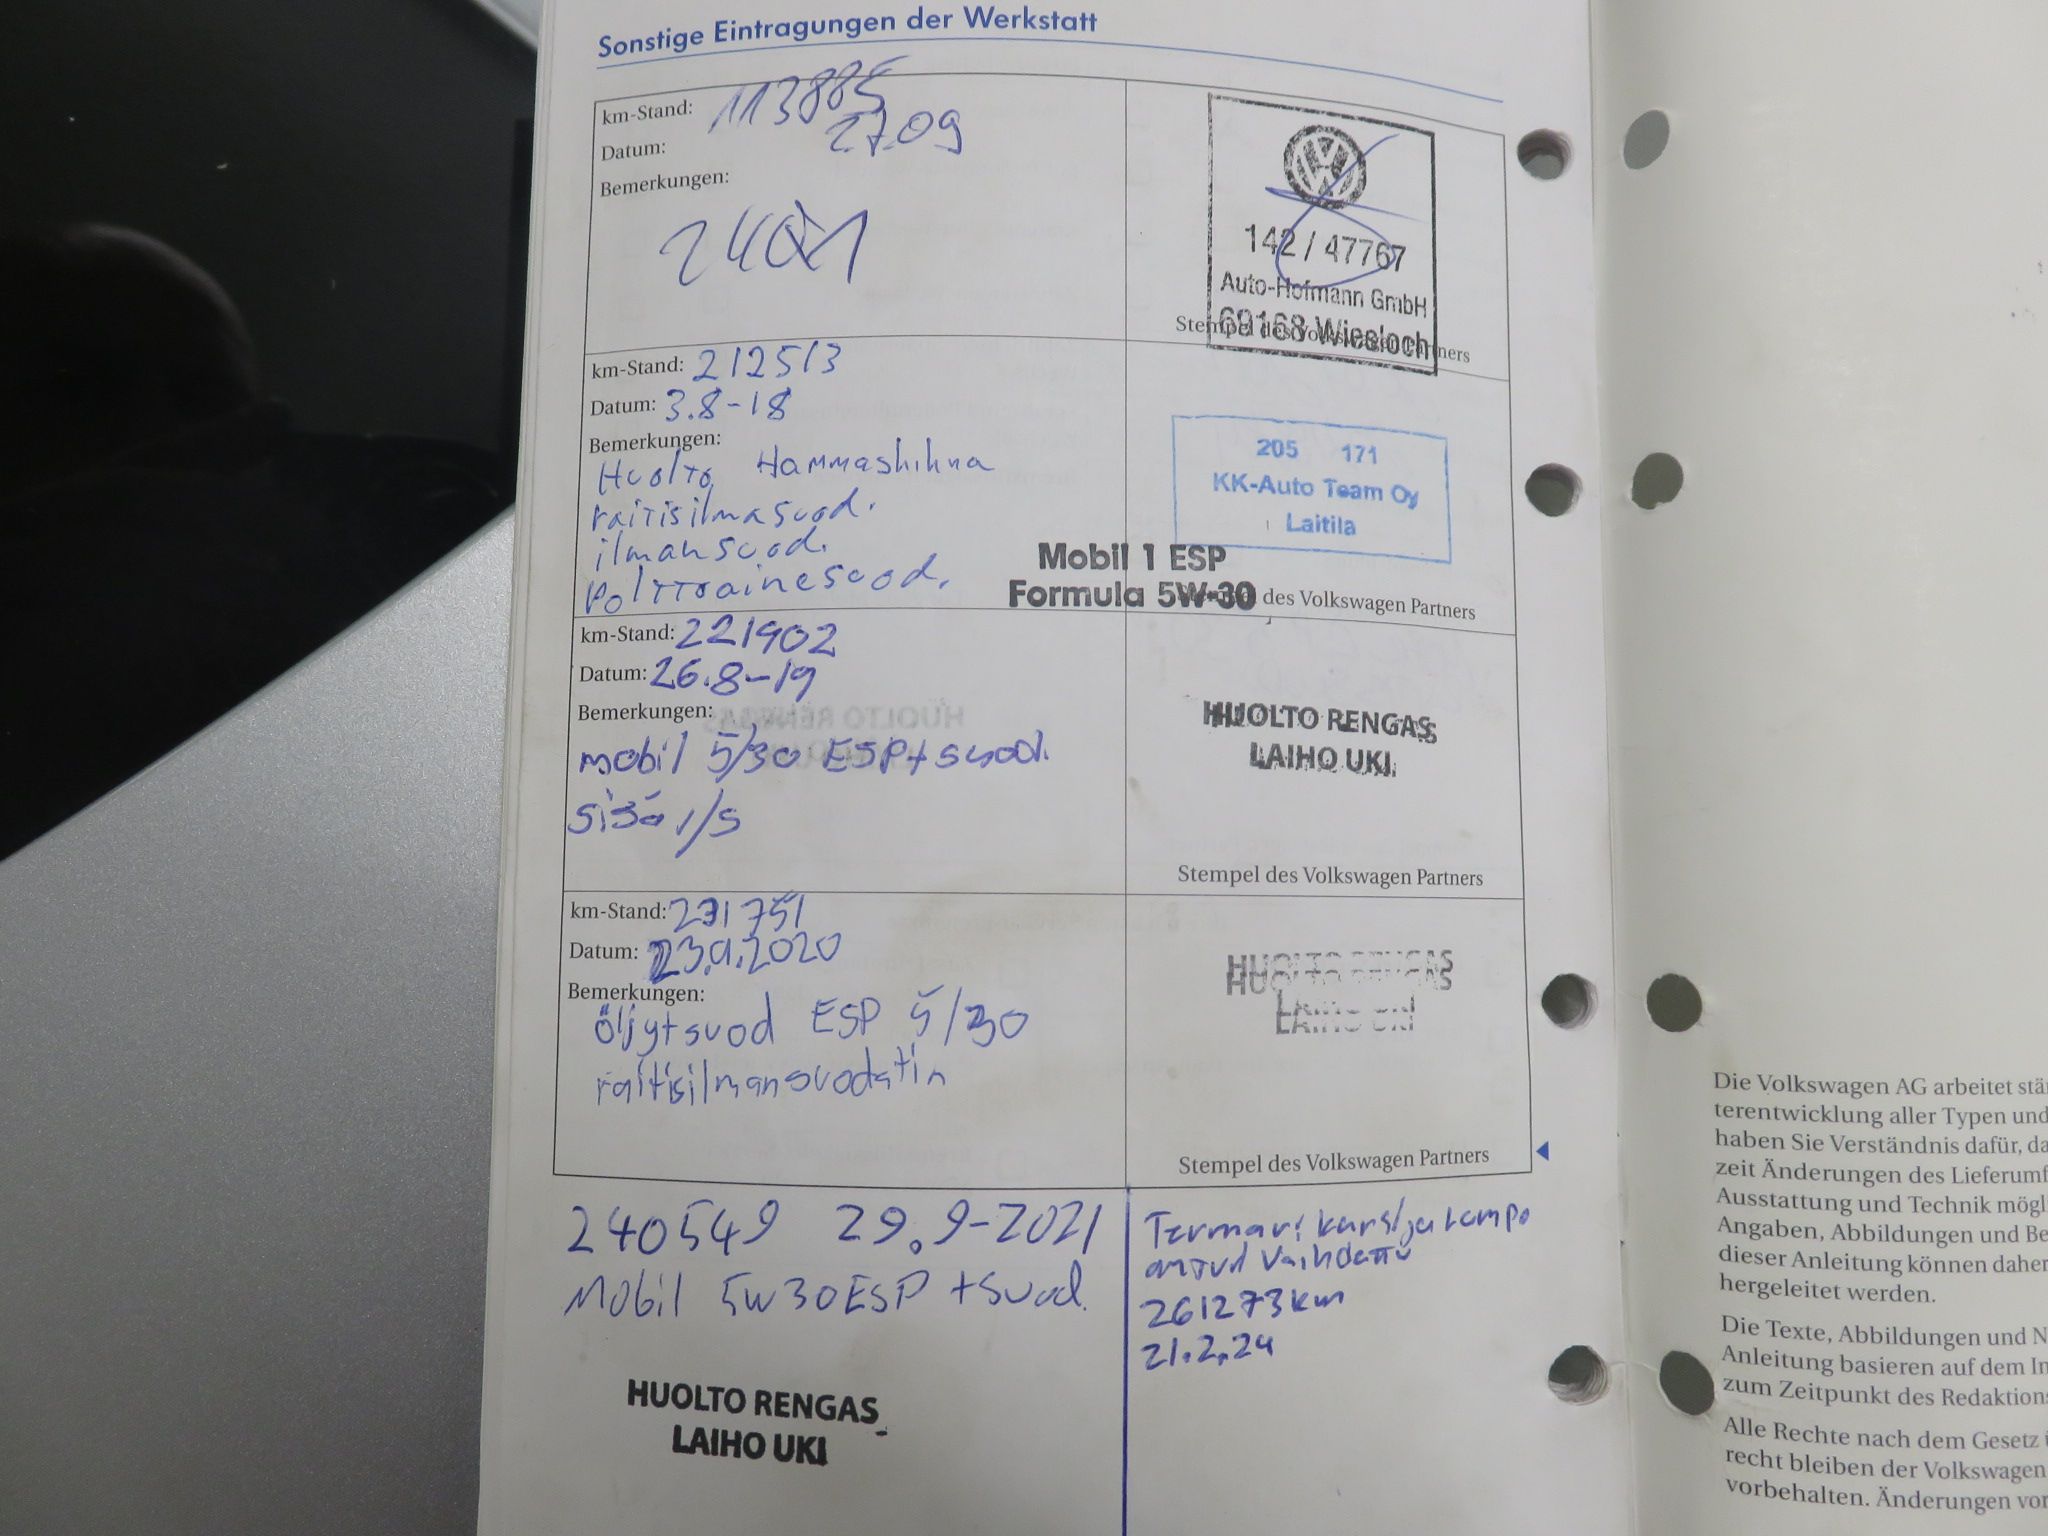 Sonstige Eintragungen der Werkstatt
km-Stand: 113885
Datum: 27.09
Bemerkungen:
142 / 47767
Auto-Hofmann GmbH
69168 Wiesloch
Stempel des Volkswagen Partners
km-Stand: 212513
Datum: 3.8-18
Bemerkungen:
Huolto, Hammashihna
raitisilmasuod.
ilmansuod.
polttoainesuod.
205 171
KK-Auto Team Oy
Laitila
Mobil 1 ESP
Formula 5W-30
des Volkswagen Partners
km-Stand: 221902
Datum: 26.8-19
Bemerkungen:
mobil 5/30 ESP+suod.
sisä r/s
HUOLTO RENGAS
LAIHO UKI
Stempel des Volkswagen Partners
km-Stand: 231751
Datum: 23.9.2020
Bemerkungen:
öljy+suod ESP 5/30
raitisilmansuodatin
HUOLTO RENGAS
LAIHO UKI
Stempel des Volkswagen Partners
240549 29.9-2021
Mobil 5w30 ESP +suod.
HUOLTO RENGAS
LAIHO UKI
Termari kansi ja lämpö
anturi Vaihdettu
261273km
21.2.24
Die Volkswagen AG arbeitet stä
terentwicklung aller Typen und
haben Sie Verständnis dafür, da
zeit Änderungen des Lieferumf
Ausstattung und Technik mögl
Angaben, Abbildungen und Be
dieser Anleitung können daher
hergeleitet werden.
Die Texte, Abbildungen und N
Anleitung basieren auf dem In
zum Zeitpunkt des Redaktions
Alle Rechte nach dem Gesetz ü
recht bleiben der Volkswagen
vorbehalten. Änderungen vor